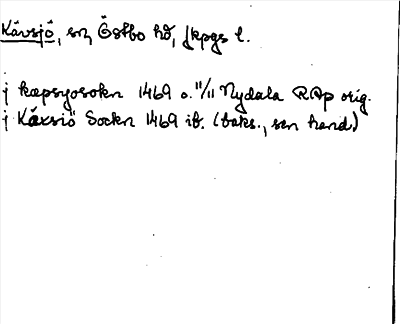 Kävsjö, sn, Östbo hd, Jkpgs l.
j kæpsyosokn 1469 o. 11/11 Nydala RAp orig.
j Käxsiö Sockn 1469 ib. (baks., sen hand)